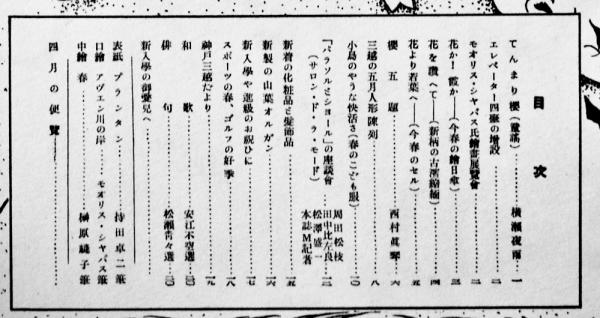 目次
てんまり櫻(童謠)……横瀬夜雨…一
エレベーター四臺の增設……二
モオリス・シャバス氏繪畫展覽會……二
花か！霞か――(今春の繪日傘)……三
花を讚へて――(新柄の古濱縮緬)……四
花より若葉へ――(今春のセル)……五
櫻五題……西村眞琴…六
三越の五月人形陳列……八
小鳥のやうな快活さ(春のこども服)……一〇
「パラソルとショール」の座談會(サロン・ド・ラ・モード)……周田松枝 田中比左良 松澤盛一 本誌M記者…一二
新着の化粧品と髮飾品……一五
新製の山葉オルガン……一六
新入學や進級のお祝ひに……一七
スポーツの春、ゴルフの好季……一八
神戸三越だより……一九
和歌……安江不空選…二〇
俳句……松瀬靑々選…二〇
新入學の御贊兒へ
表紙 プランタン……持田卓二筆
口繪 アヴェン川の岸……モオリス・シャバス筆
中繪 春……榊原綾子筆
四月の便覽